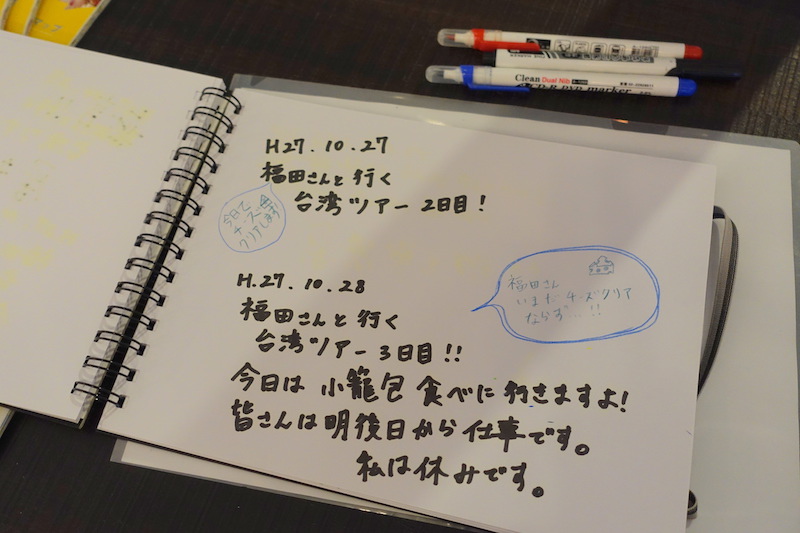 H27.10.27
福田さんと行く
台湾ツアー 2日目!
今日で
チーズ
クリアします
H.27.10.28
福田さんと行く
台湾ツアー 3日目!!
今日は 小籠包 食べに 行きますよ!
皆さんは明後日から 仕事です。
私は休みです。
福田さん
いまだ チーズクリア
ならず…!!
Clean Dual Nib
CD-R DVD marker